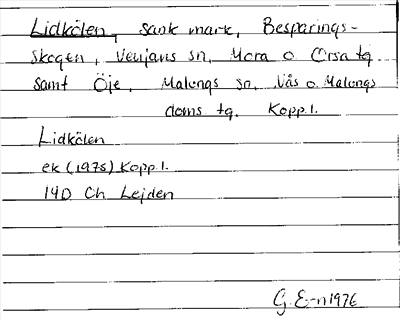 Lidkölen, sank mark, Besparings-
skogen, Venjans sn, Mora o Orsa tg
samt Öje, Malungs sn, Nås o. Malungs
doms tg. Kopp. l.
Lidkölen
ek (1975) Kopp. l.
14D Ch Lejden
G. E-n 1976